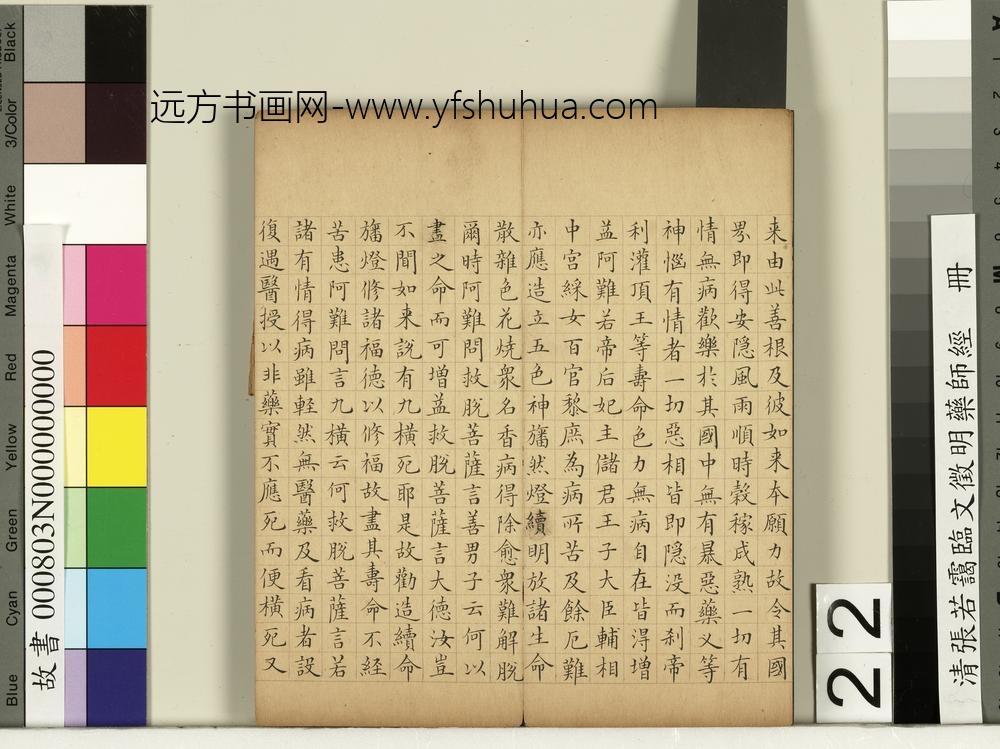 远方书画网-www.yfshuhua.com
来由此善根及彼如来本願力故令其國
界即得安隐風雨順時穀稼成熟一切有
情無病歡樂於其國中無有暴惡藥叉等
神惱有情者一切惡相皆即隐没而刹帝
利灌頂王等壽命色力無病自在皆得增
益阿難若帝后妃主儲君王子大臣輔相
中宮綵女百官黎庶為病所苦及餘厄難
亦應造立五色神旛然燈續明放諸生命
散雜色花燒衆名香病得除愈衆難解脫
爾時阿難問救脫菩薩言善男子云何以
盡之命而可增益救脫菩薩言大德汝豈
不聞如来說有九橫死耶是故勸造續命
旛燈修諸福德以修福故盡其壽命不經
苦患阿難問言九橫云何救脫菩薩言若
諸有情得病雖輕然無醫藥及看病者設
復遇醫授以非藥實不應死而便橫死又
清張若靄臨文徵明藥師經 冊
22
故書 000803N000000000
Blue
Cyan
Green
Yellow
Red
Magenta
White
3/Color
Black